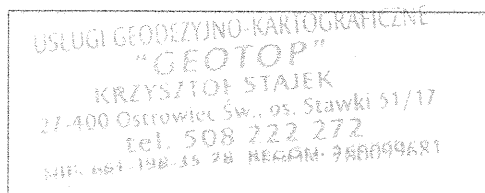 USŁUGI GEODEZYJNO-KARTOGRAFICZNE
"GEOTOP"
KRZYSZTOF STAJEK
27-400 Ostrowiec Św., os. Stawki 51/17
tel. 508 222 272
NIP: 661-198-35-28 REGON: